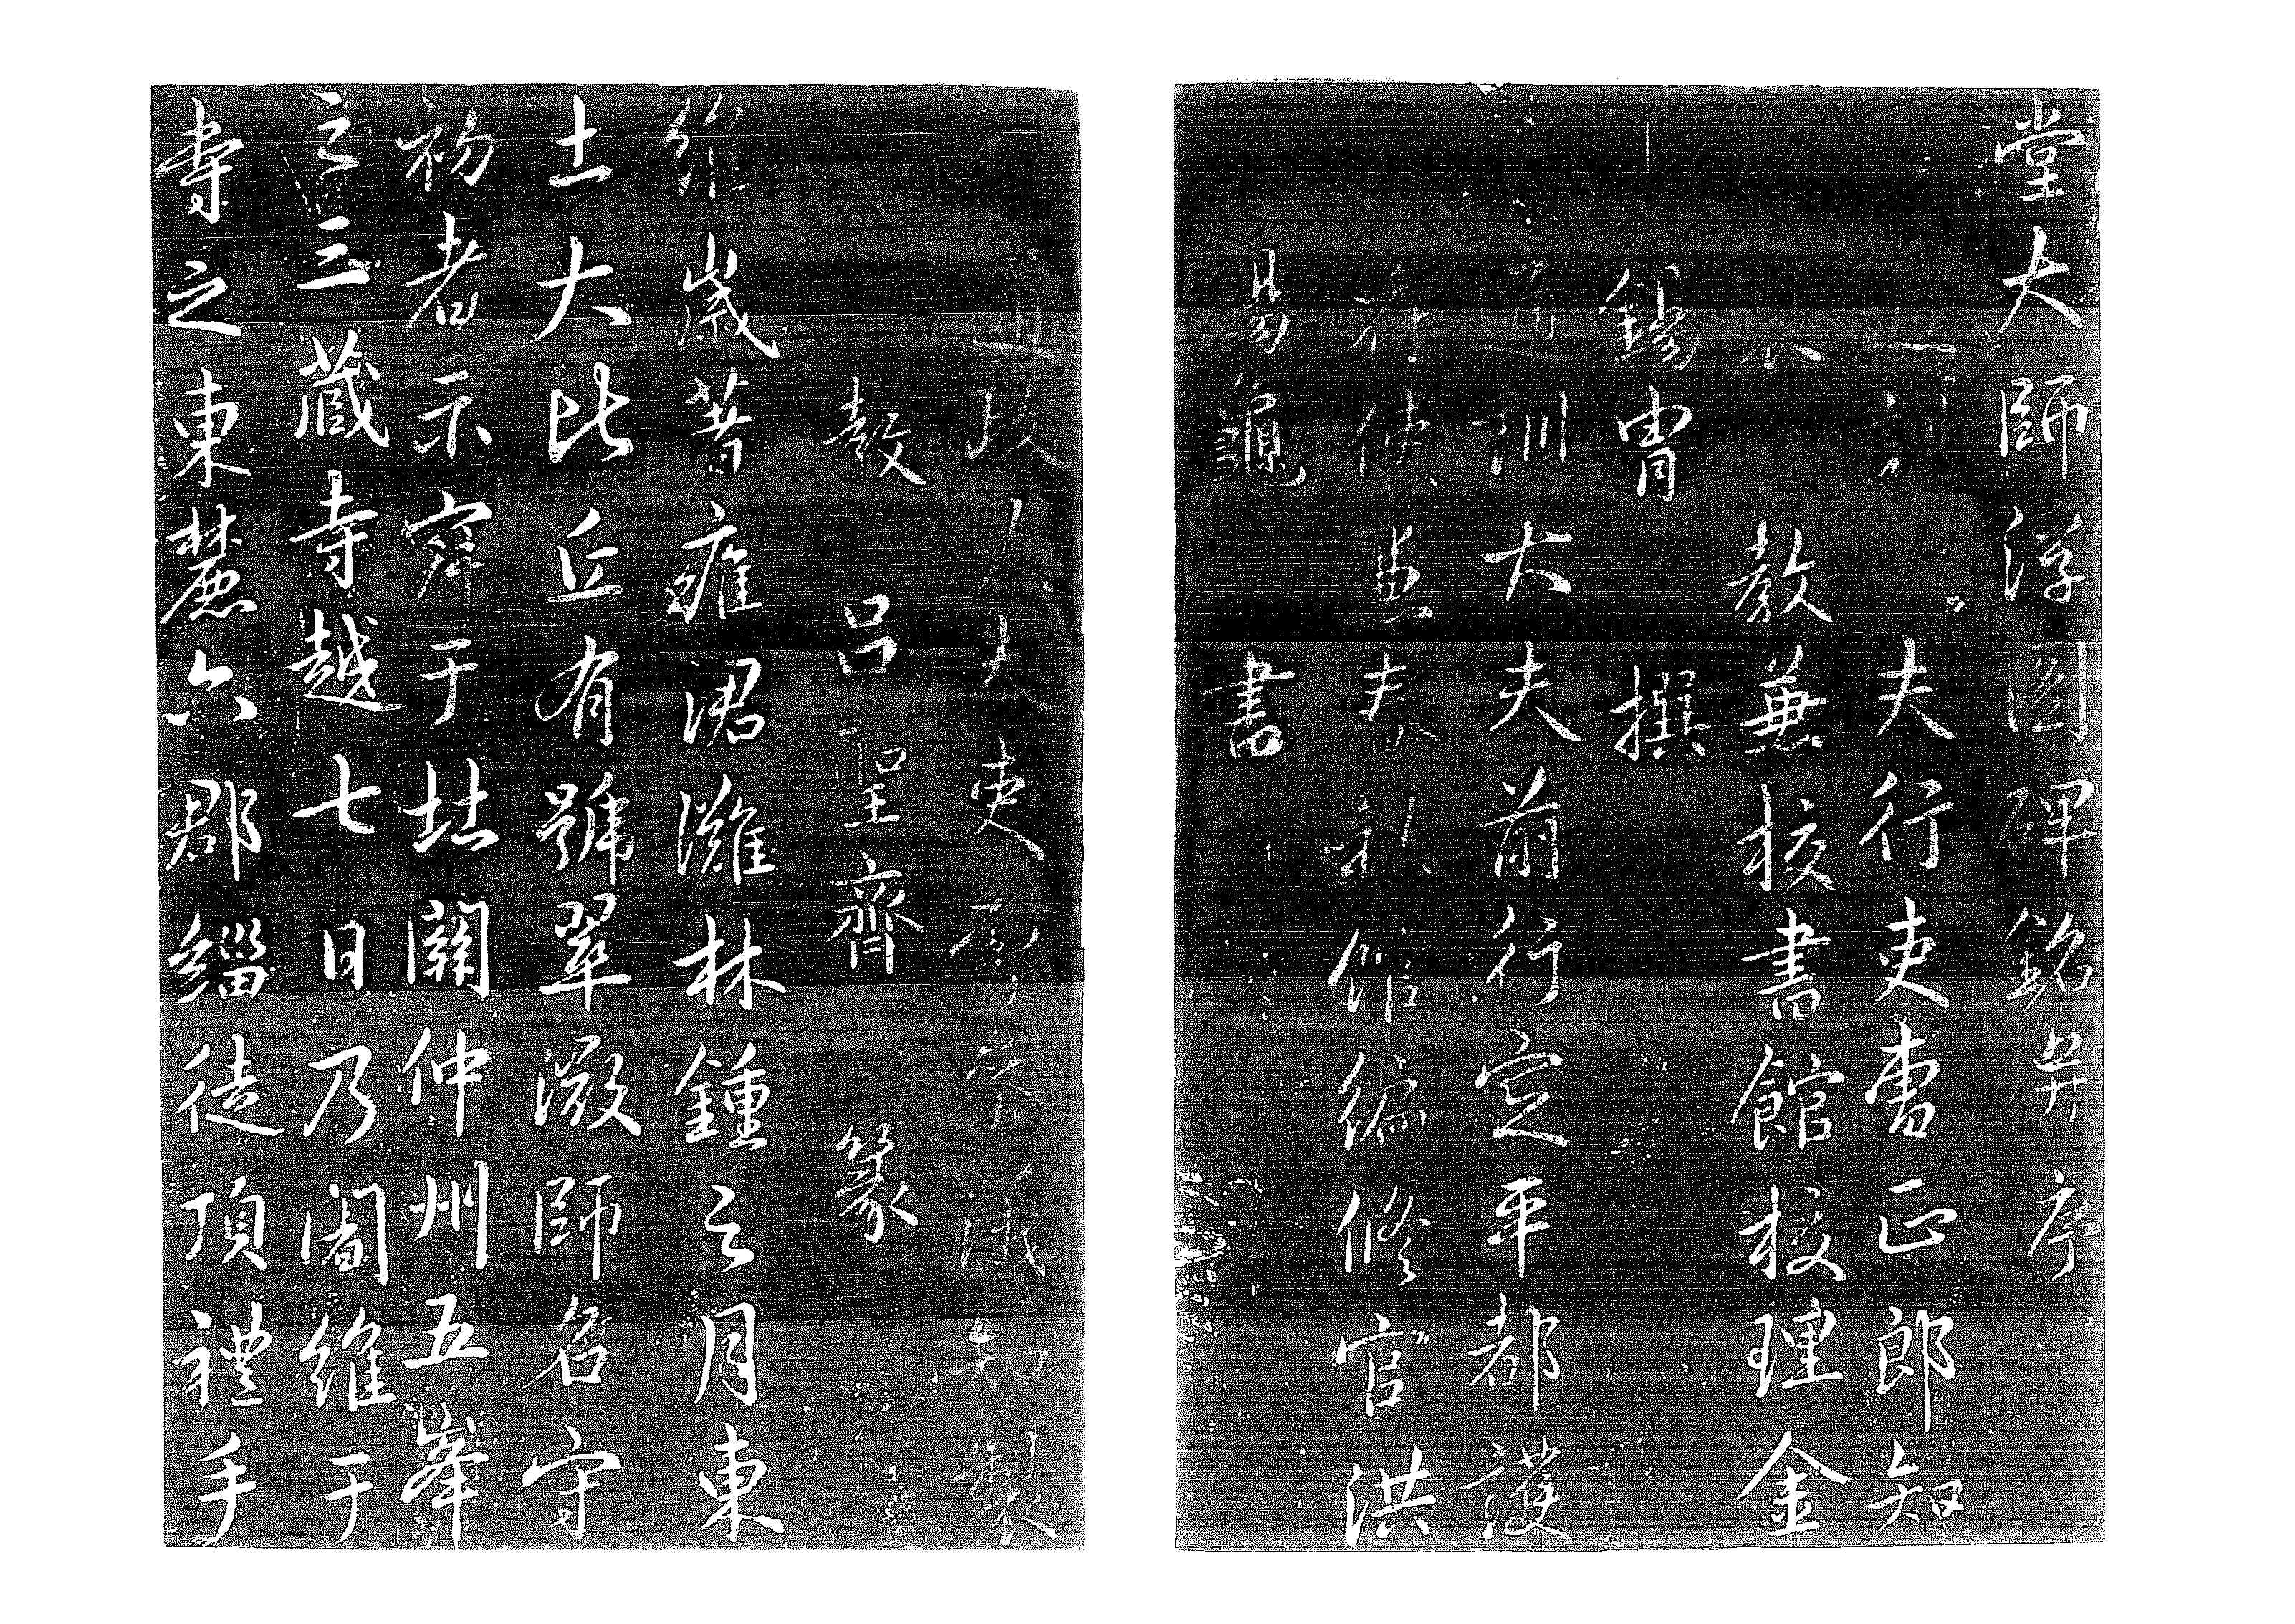 堂大師浮圖碑銘并序
訓夫行吏曹正郎知
教兼校書館校理金
錫胄撰
訓大夫前行定平都護
府使兼春秋館編修官洪
錫龜書
政大夫吏曹參議知製
教呂聖齊篆
維歲著雍涒灘林鍾之月東
土大比丘有號翠微師名守
初者示寂于北關仲州五峯
之三藏寺越七日乃闍維于
寺之東麓六郡緇徒頂禮手